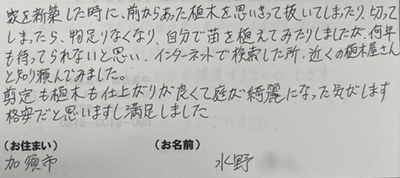 家を新築した時に、前からあった植木を思いきって抜いてしまったり、切って
しまったら、物足りなくなり、自分で苗を植えてみたりしましたが、何年
も待ってられないと思い、インターネットで検索した所、近くの植木屋さん
と知り頼んでみました。
剪定も植木も仕上がりが良くて庭が綺麗になった気がします
格安だと思いますし満足しました
(お住まい) (お名前)
加須市 水野